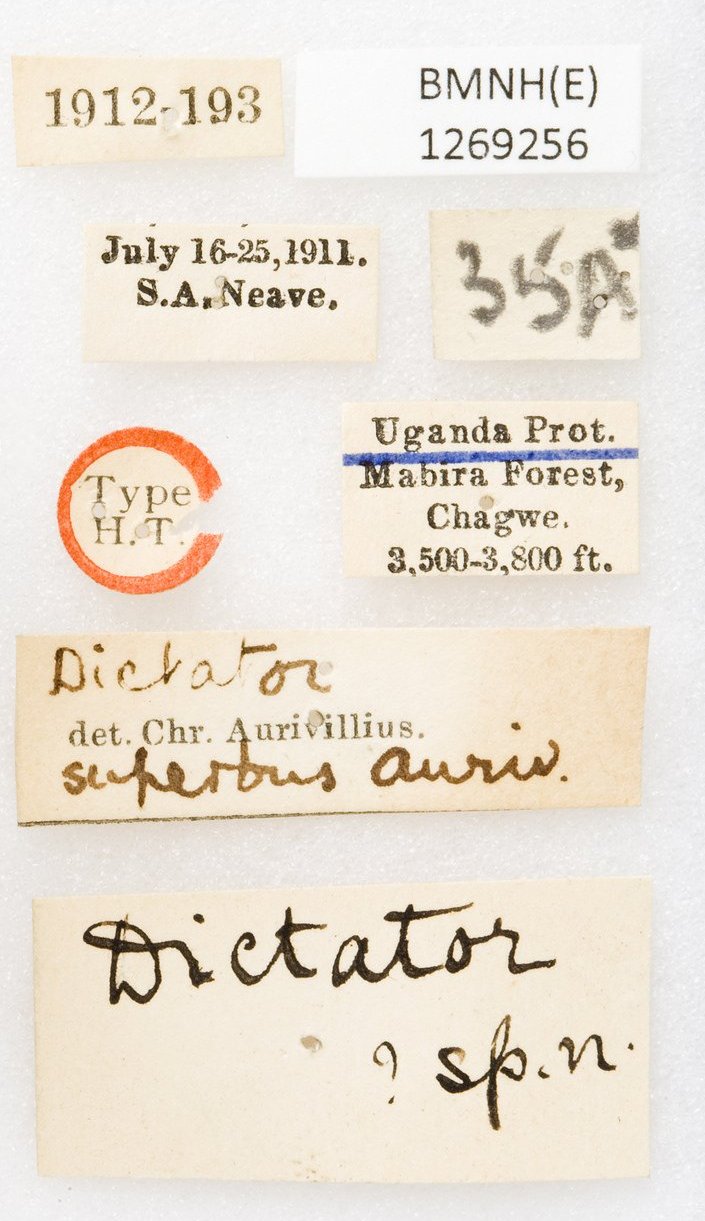 1912-193
BMNH(E)
1269256
July 16-25, 1911.
S.A. Neave.
35A
Type
H.T.
Uganda Prot.
Mabira Forest,
Chagwe.
3,500-3,800 ft.
Dictator
det. Chr. Aurivillius.
superbus auriv.
Dictator
? sp. n.